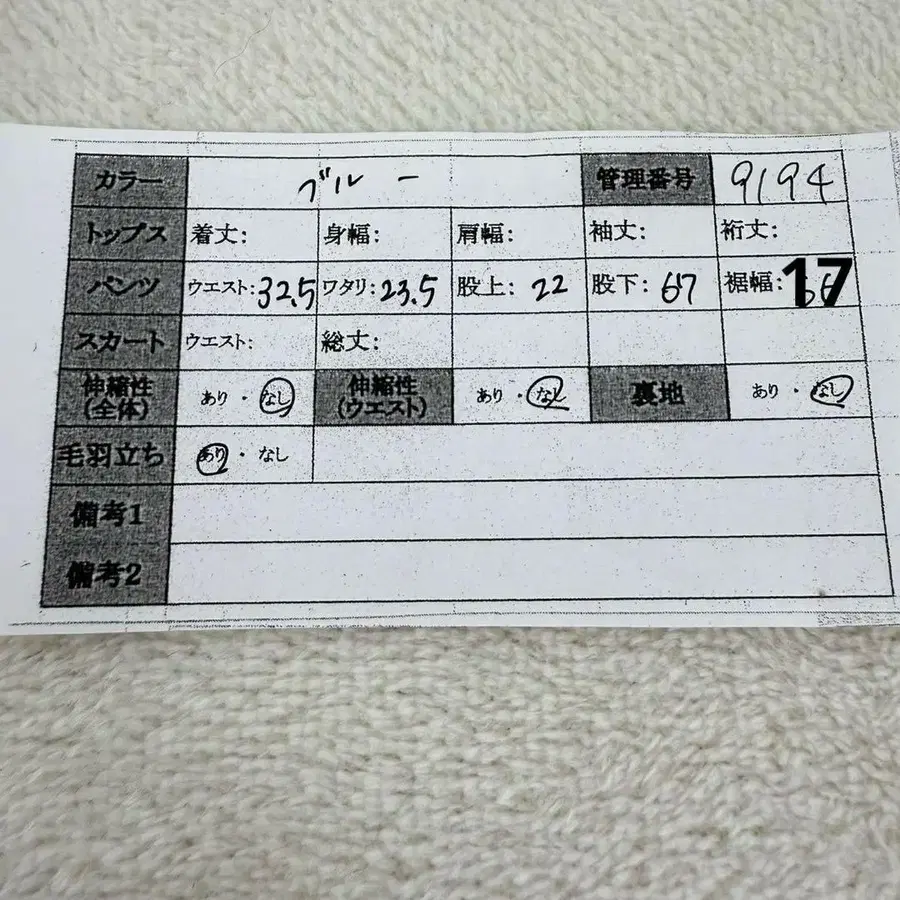 カラー ブルー 管理番号 9194
トップス 着丈: 身幅: 肩幅: 袖丈: 裄丈:
パンツ ウエスト: 32.5 ワタリ: 23.5 股上: 22 股下: 67 裾幅: 17
スカート ウエスト: 総丈:
伸縮性 (全体) あり・なし 伸縮性 (ウエスト) あり・なし 裏地 あり・なし
毛羽立ち あり・なし
備考1
備考2